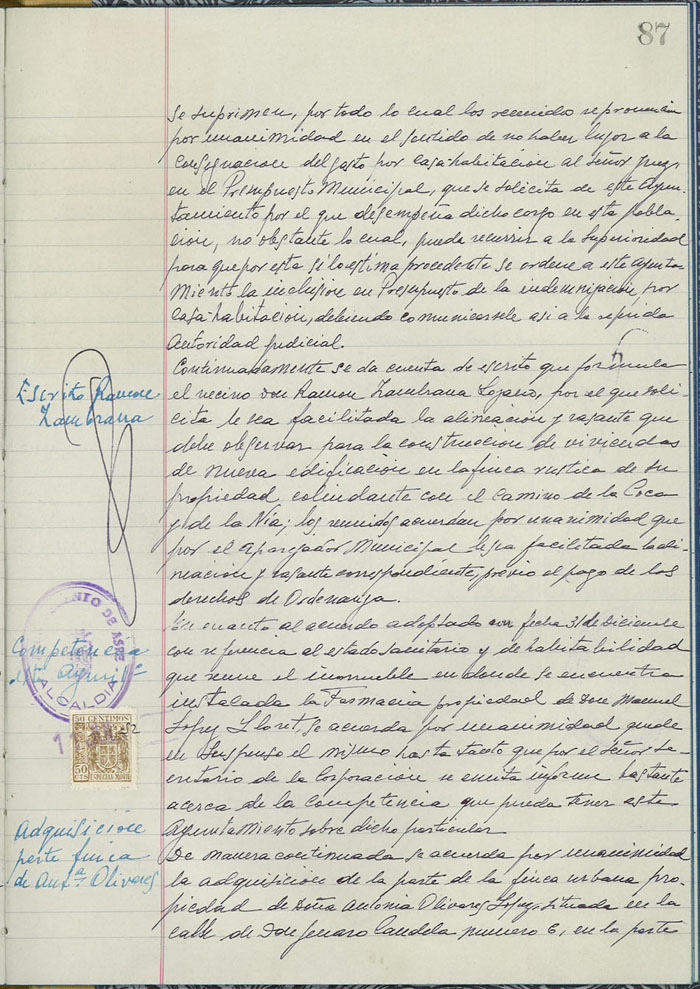 87
se suprimen, por todo lo cual los reunidos se pronuncian
por unanimidad en el sentido de no haber lugar a la
consignacion del gasto por casa habitación al Señor Juez
en el Presupuesto Municipal, que se solicita de este Ayun-
tamiento por el que desempeña dicho cargo en esta pobla-
ción, no obstante lo cual, pueda recurrir a la Superioridad
para que por esta si lo estima procedente se ordene a este Ayunta-
miento la inclusión en Presupuesto de la indemnización por
casa habitación, debiendo comunicarsele asi a la referida
Autoridad Judicial.
Escrito Ramon
Zambrana
Continuadamente se da cuenta de escrito que formula
el vecino Don Ramon Zambrana, por el que soli-
cita le sea facilitada la alineación y rasante que
debe observar para la construccion de viviendas
de nueva edificación en la finca rustica de su
propiedad colindante con el Camino de la Coca
y de la Vía; los reunidos acuerdan por unanimidad que
por el Aparejador Municipal le sea facilitada la ali-
neación y rasante correspondiente, previo el pago de los
derechos de Ordenanza.
Competencia
este Ayunt.º
En cuanto al acuerdo adoptado con fecha 31 de Diciembre
con referencia al estado sanitario y de habitabilidad
que reune el inmueble en donde se encuentra
instalada la Farmacia propiedad de Don Manuel
Lopez Lloret, se acuerda por unanimidad quede
en suspenso el mismo hasta tanto que por el Señor Se-
cretario de la Corporación se emita informe bastante
acerca de la competencia que pueda tener este
Ayuntamiento sobre dicho particular
ALCALDIA
DE ASPE
50 CENTIMOS
50 CTS
ESPECIAL MOVIL
Adquisición
parte finca
de Ant.ª Olivares
De manera continuada se acuerda por unanimidad
la adquisición de la parte de la finca urbana pro-
piedad de Doña Antonia Olivares Lopez, situada en la
calle de Don Genaro Candela numero 6, en la parte